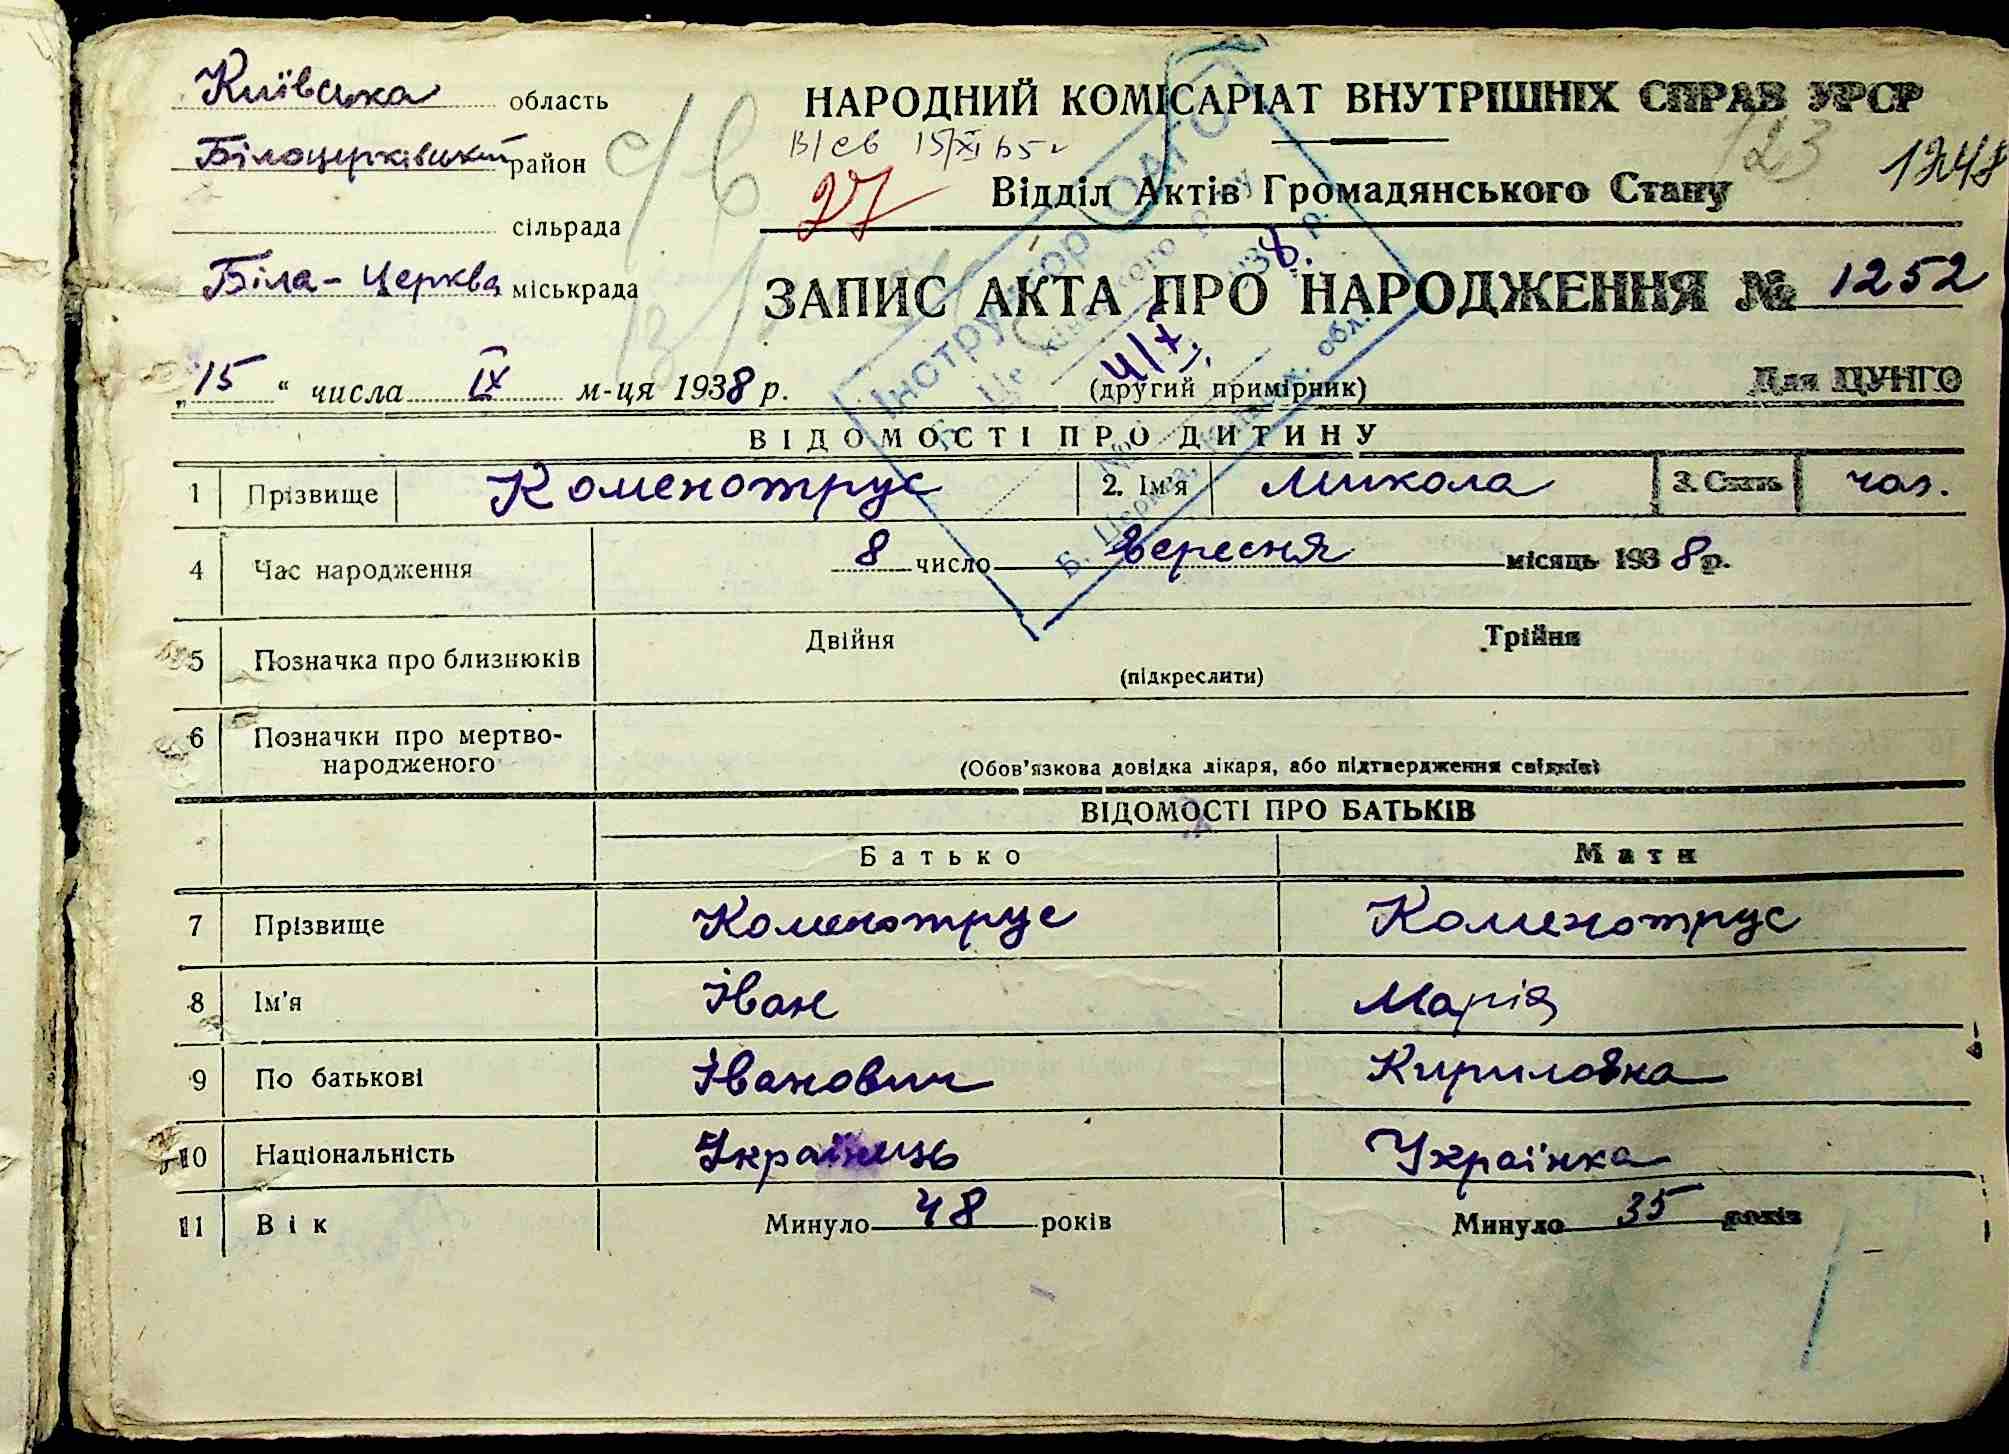 Київська область
Білоцерківський район
сільрада
Біла-Церква міськрада
НАРОДНИЙ КОМІСАРІАТ ВНУТРІШНІХ СПРАВ УРСР
В/св 15/XI 65 г
123 1248
27
Відділ Актів Громадянського Стану
ЗАПИС АКТА ПРО НАРОДЖЕННЯ № 1252
„15“ числа IX м-ця 1938 р.
(другий примірник)
Для ЦУНГО
ВІДОМОСТІ ПРО ДИТИНУ
1 Прізвище Коменотрус 2. Ім'я Микола 3. Стать чол.
4 Час народження 8 число вересня місяць 1938 р.
5 Позначка про близнюків Двійня Трійня
(підкреслити)
6 Позначки про мертво-
народженого
(Обов'язкова довідка лікаря, або підтвердження свідків)
ВІДОМОСТІ ПРО БАТЬКІВ
Батько Мати
7 Прізвище Коменотрус Коменотрус
8 Ім'я Іван Марія
9 По батькові Іванович Кириловна
10 Національність Українець Українка
11 Вік Минуло 48 років Минуло 35 років